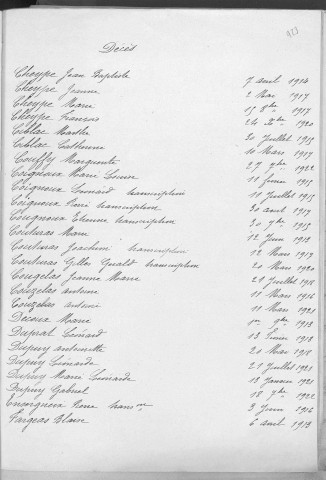 Décès
Cheype Jean Baptiste 7 avril 1914
Cheype Jeanne 2 Mai 1917
Cheype Marie 15 8bre 1917
Cheype François 24 Xbre 1920
Ciblac Marthe 20 Juillet 1915
Ciblac Catherine 10 Mars 1917
Couffy Marguerite 27 9bre 1922
Coigneux Marie Louise 11 février 1915
Coigneux Léonard transcription 11 Juillet 1915
Coigneux Pierre transcription 30 août 1917
Coigneux Etienne transcription 30 9bre 1915
Couturas Marie 12 Juin 1918
Couturas Joachim transcription 12 Mars 1919
Couturas Gilles transcription 20 Mars 1920
Cougelas Jeanne Marie 21 Juillet 1918
Couzelas Antoine 11 Mars 1916
Couzelas Antoine 11 Mars 1921
Decoux Marie 1913
Duprat Léonard 13 février 1918
Dupuy Antoinette 20 Mai 1918
Dupuy Léonarde 21 Juillet 1921
Dupuy Marie Léonarde 13 Janvier 1921
Dupuy Gabriel 18 9bre 1922
Pierre 3 Juin 1916
Fargeas Blaise 6 avril 1913